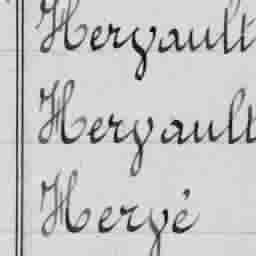 Hervault
Hervault
Hervé